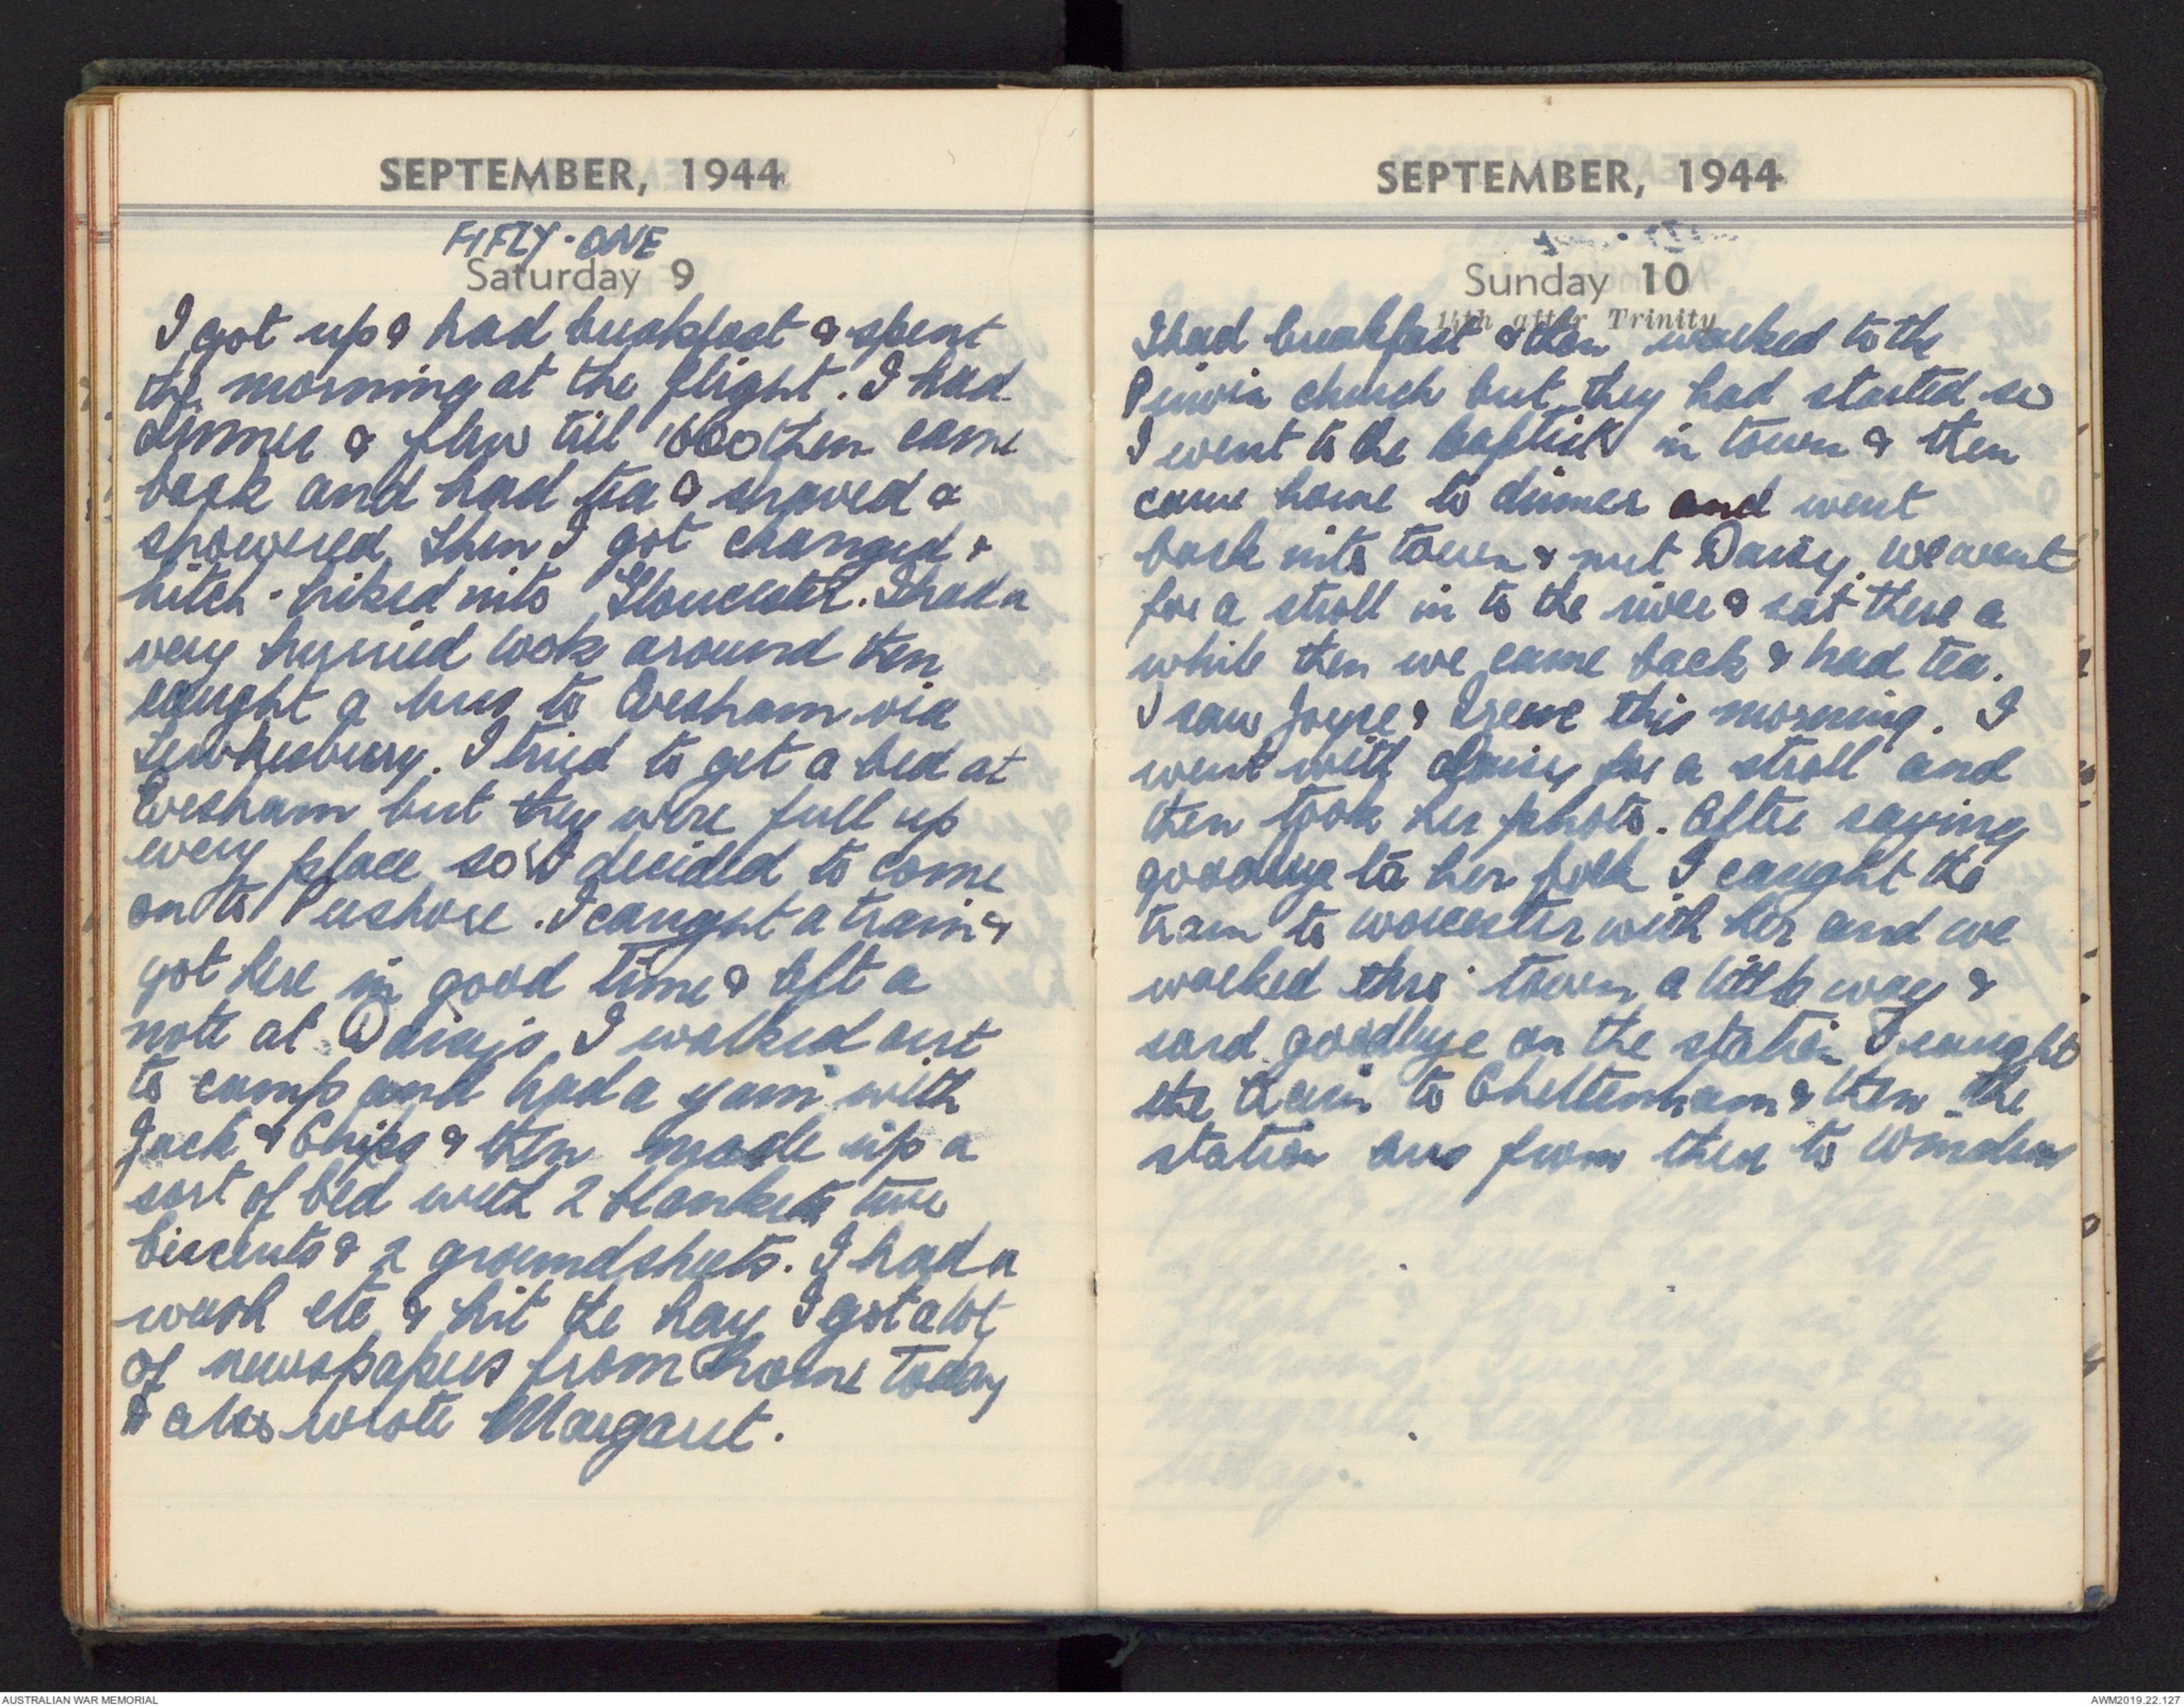 SEPTEMBER, 1944
FIFTY-ONE
Saturday 9
I got up & had breakfast & spent
the morning at the flight. I had
dinner & flew till 1600 then came
back and had tea & shaved &
showered. Then I got changed &
hitch-hiked into Gloucester. I had a
very hurried look around then
caught a bus to Evesham via
Tewkesbury. I tried to get a bed at
Evesham but they were full up
every place so I decided to come
on to Pershore. I caught a train &
got here in good time & left a
note at Daisy's. I walked out
to camp and had a yarn with
Jack & Chips & then made up a
sort of bed with 2 blankets two
biscuits & 2 groundsheets. I had a
wash etc & hit the hay I got a lot
of newspapers from home today
& also wrote Margaret.
SEPTEMBER, 1944
Sunday 10
14th after Trinity
I had breakfast & then walked to the
Pinvin church but they had started so
I went to the baptist in town & then
came home to dinner and went
back into town & met Daisy. We went
for a stroll in to the river & sat there a
while then we came back & had tea.
I saw Joyce & Irene this morning. I
went with Daisy for a stroll and
then took her photo. After saying
goodbye to her folk I caught the
train to Worcester with her and we
walked thro' town a little way &
said goodbye on the station I caught
the train to Cheltenham & then the
station bus from there to Windrush
AUSTRALIAN WAR MEMORIAL
AWM2019.22.127